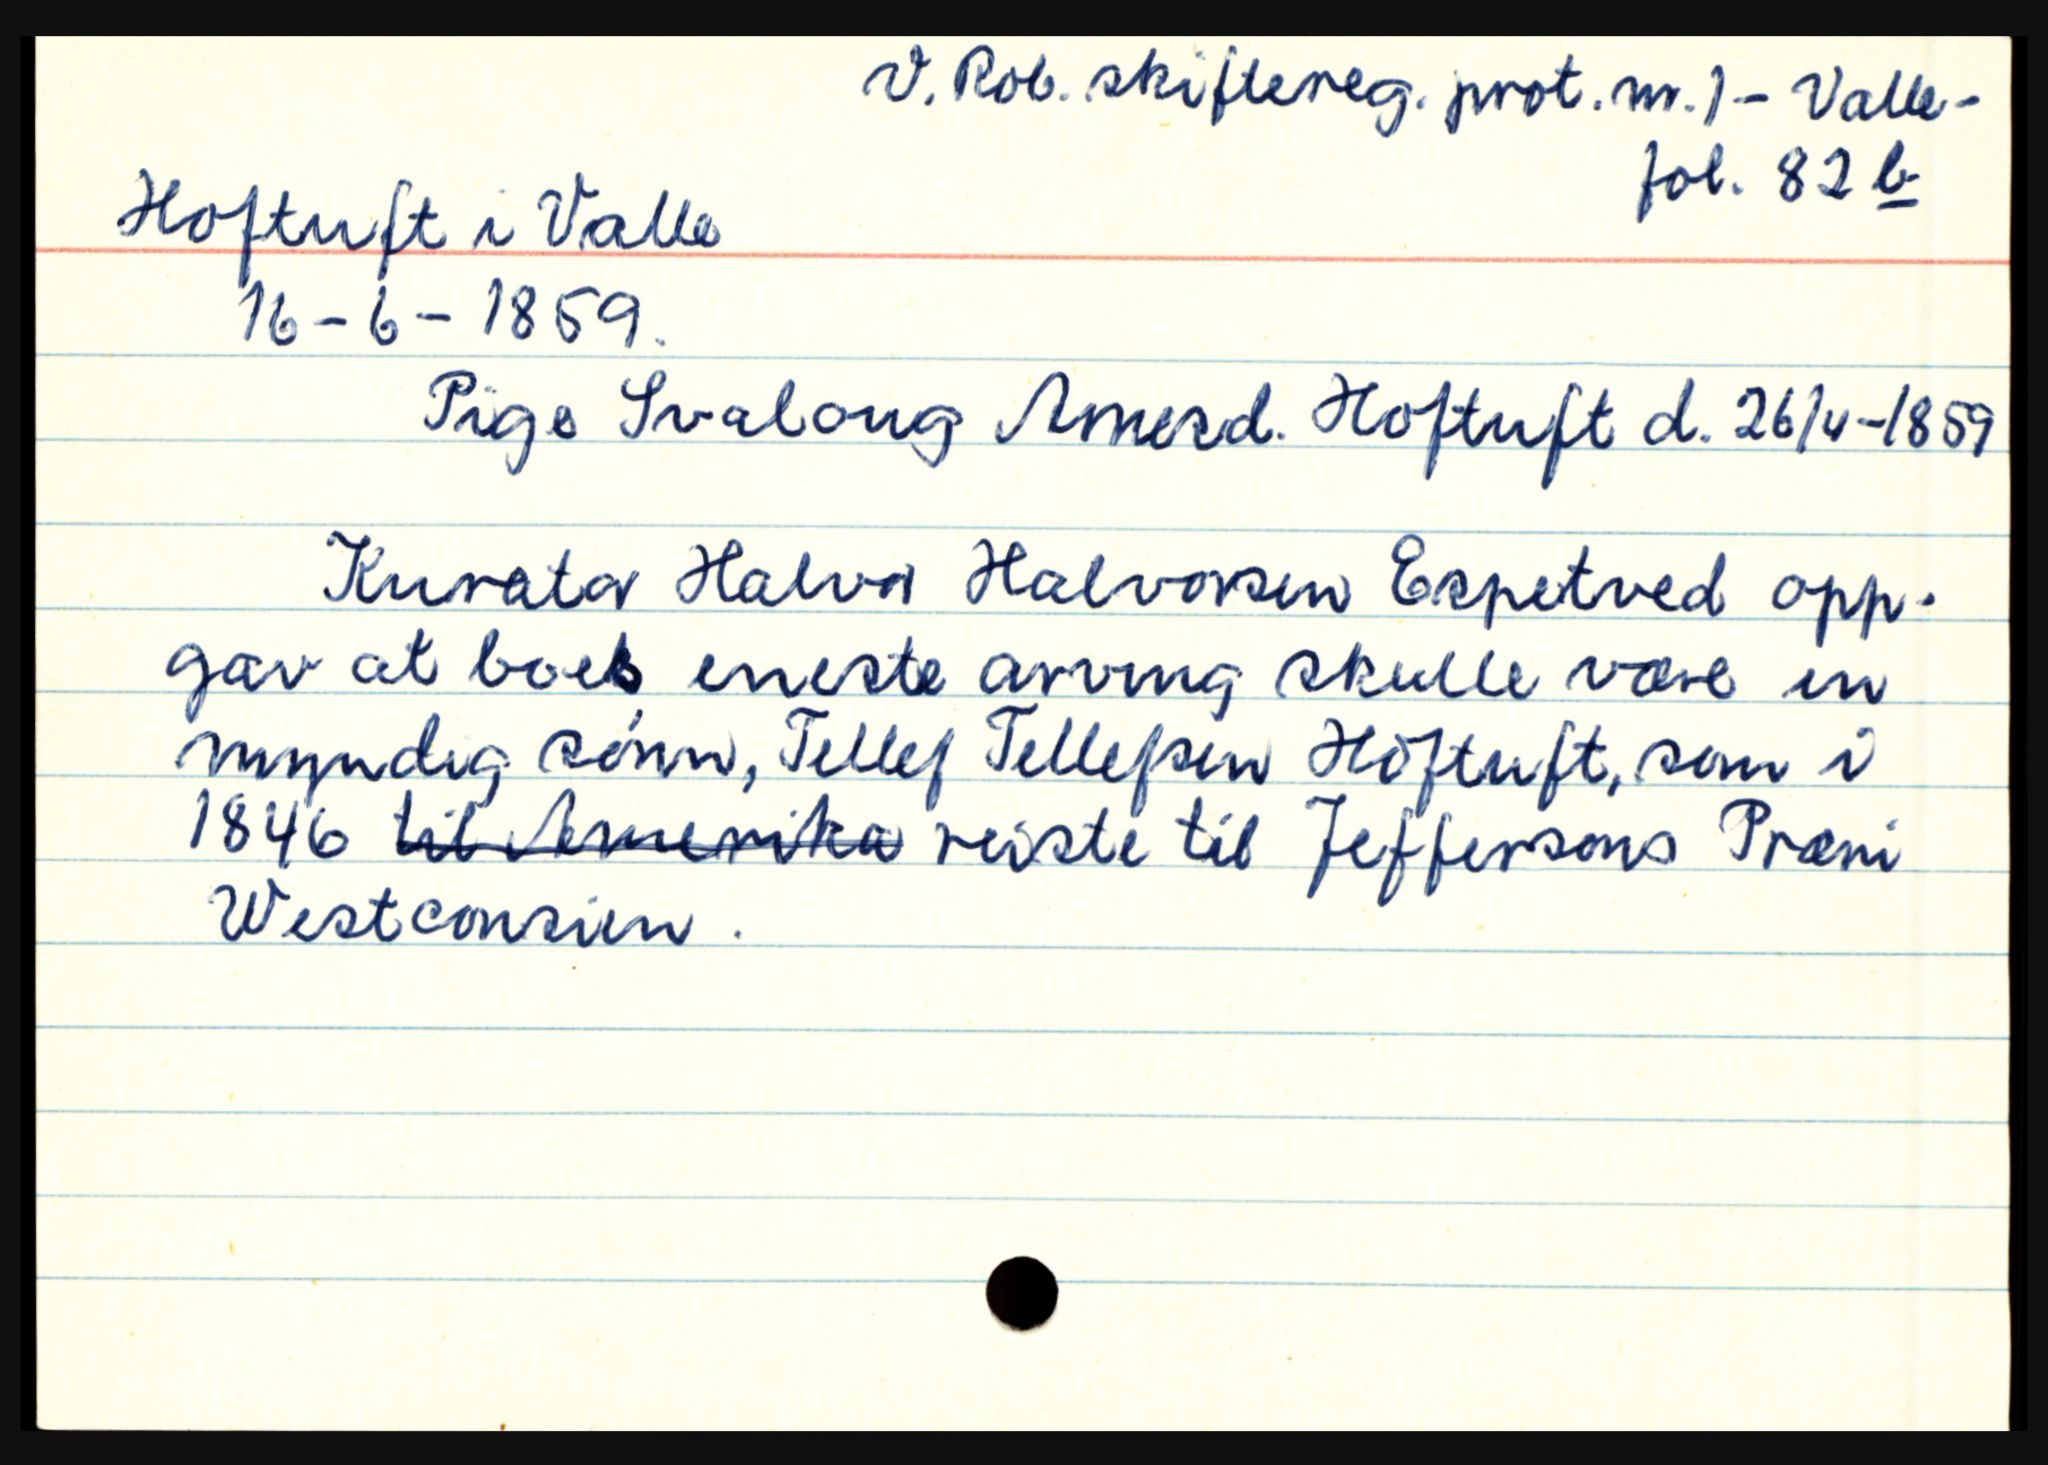 V. Rob. skiftereg. prot. nr. 1 - Valle -
fol. 82 b
Hoftuft i Valle
16 - 6 - 1859.
Pige Svaloug Amesd. Hoftuft d. 26/4-1859
Kurator Halvor Halvorsen Espetved opp-
gav at boets eneste arving skulle være en
myndig sönn, Tellef Tellefsen Hoftuft, som i
1846 ~~til Amerika~~ reiste til Jeffersons Præri
Westconsien.